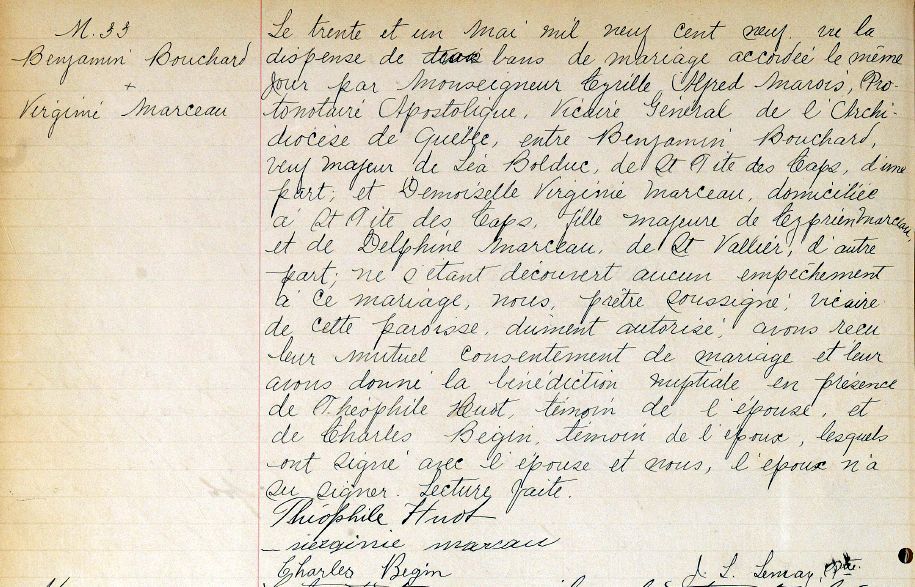 M. 33
Benjamin Bouchard
+
Virginie Marceau
Le trente et un Mai mil neuf cent neuf. vu la
dispense de deux bans de mariage accordée le même
jour par Monseigneur Cyrille Alfred Marois, Pro-
tonotaire Apostolique, Vicaire Général de l'Archi-
diocèse de Québec, entre Benjamin Bouchard,
veuf majeur de Léa Bolduc, de St Tite des Caps, d'une
part; et Demoiselle Virginie Marceau, domiciliée
à St Tite des Caps, fille majeure de Cyprien Marceau,
et de Delphine Marceau, de St Vallier, d'autre
part; ne s'étant découvert aucun empêchement
à ce mariage, nous, prêtre soussigné, vicaire
de cette paroisse, dument autorisé, avons reçu
leur mutuel consentement de mariage et leur
avons donné la bénédiction nuptiale en présence
de Théophile Huot, témoin de l'épouse, et
de Charles Bégin, témoin de l'époux, lesquels
ont signé avec l'épouse et nous, l'époux n'a
su signer. Lecture faite.
Théophile Huot
virginie marcau
Charles Begin
J. L. Lemay Ptre.